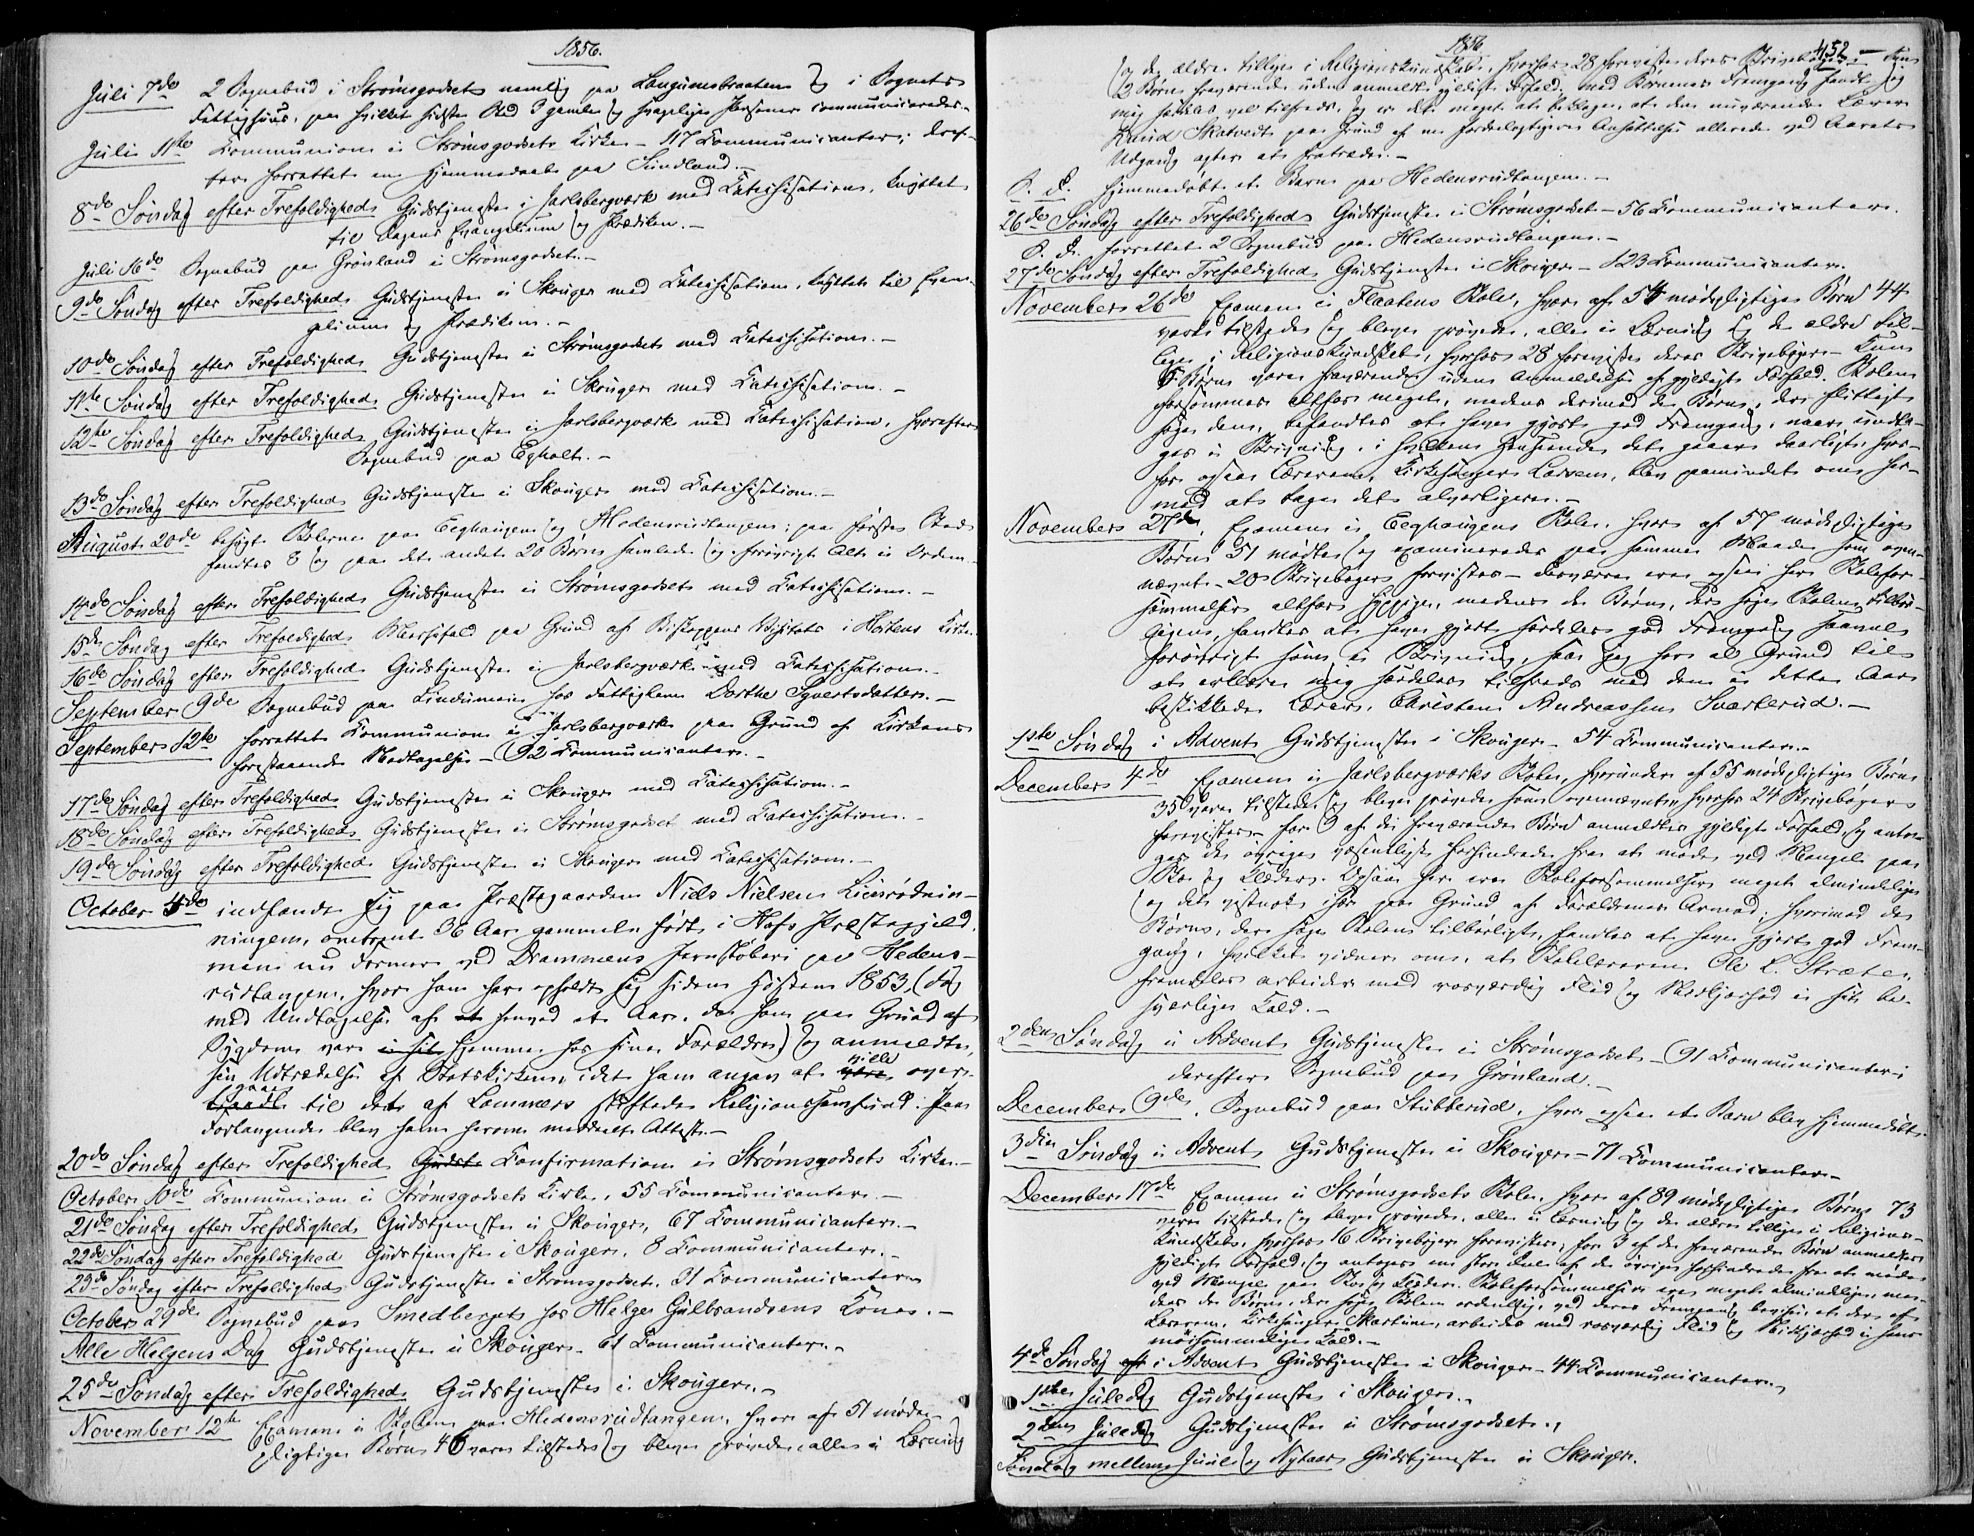 1856.
Juli 7de 2 Sognebud i Strømsgodset nemlig paa Langumsbraaten og i Sognets
Fattighuus, paa hvilket sidste Sted 3 gamle og svagelige Personer communicerede.
Juli 11te Communion i Strømsgodsets Kirke – 117 Communicanter; der-
paa forrettet en Hjemmedaab paa Sundland. –
8de Søndag efter Trefoldighed Gudstjeneste i Jarlsbergværk med Catechisation, knyttet
til Dagens Evangelium og Prædiken. –
Juli 16de Sognebud paa Grønland i Strømsgodset. –
9de Søndag efter Trefoldighed Gudstjeneste i Skouger med Catechisation, knyttet til Evan-
gelium og Prædiken. –
10de Søndag efter Trefoldighed Gudstjeneste i Strømsgodset med Catechisation. –
11te Søndag efter Trefoldighed Gudstjeneste i Skouger med Catechisation. –
12te Søndag efter Trefoldighed Gudstjeneste i Jarlsbergværk med Catechisation, hvorefter
Sognebud paa Egholt. –
13de Søndag efter Trefoldighed Gudstjeneste i Skouger med Catechisation. –
August 20de besøgt Skolerne paa Eeghaugen og Hedensrudtangen; paa første Sted
fandtes 8 og paa det andet 20 Børn samlede og forøvrigt Alt i Orden.
14de Søndag efter Trefoldighed Gudstjeneste i Strømsgodset med Catechisation. –
15de Søndag efter Trefoldighed Messefald paa Grund af Biskoppens Visitats i Hortens Kirke.
16de Søndag efter Trefoldighed Gudstjeneste i Jarlsbergværk med Catechisation. –
September 9de Sognebud paa Lindumeie hos Fattiglem Dorthe Syvertsdatter. –
September 12te forrettet Communion i Jarlsbergværk paa Grund af Kirkens
forestaaende Nedtagelse – 92 Communicanter. –
17de Søndag efter Trefoldighed Gudstjeneste i Skouger med Catechisation. –
18de Søndag efter Trefoldighed Gudstjeneste i Strømsgodset med Catechisation. –
19de Søndag efter Trefoldighed Gudstjeneste i Skouger med Catechisation. –
October 4de indfandt sig paa Præstegaarden Niels Nielsen Liersrødnin-
ningen, omtrent 36 Aar gammel født i Hofs Præstegjeld,
men nu Former ved Drammens Jernstøberi paa Hedens-
rudtangen, hvor han har opholdt sig siden Høsten 1853, (dog
med Undtagelse af et henved et Aar, da han paa Grund af
Sygdom var i sit hjemme hos sine Forældre) og anmeldte
sin Udtrædelse af Statskirken, idet han angav at ville over-
gaae til det af Lammers stiftede Religionssamfund. Paa
Forlangende blev ham herom meddeelt Attest. –
20de Søndag efter Trefoldighed Gudstj. Confirmation i Strømsgodsets Kirke. –
October 10de Communion i Strømsgodsets Kirke, 55 Communicanter. –
21de Søndag efter Trefoldighed Gudstjeneste i Skouger, 67 Communicanter. –
22de Søndag efter Trefoldighed Gudstjeneste i Skouger, 8 Communicanter. –
23de Søndag efter Trefoldighed Gudstjeneste i Strømsgodset, 31 Communicanter
October 29de Sognebud paa Smedberget hos Helge Gulbrandsens Kone. –
Alle Helgens Dag Gudstjeneste i Skouger – 61 Communicanter. –
25de Søndag efter Trefoldighed Gudstjeneste i Skouger. –
November 12te Examen i Skolen paa Hedensrudtangen, hvor af 51 møde-
pligtige Børn 46 vare tilstede og bleve prøvede alle i Læsning
1856
452
og de ældre tillige i Religionskundskab, hvorhos 28 foreviste deres Skrivebøger – Kun
2 Børn fraværende uden anmeldt gyldigt Forfald. Med Børnenes Fremgang fandt jeg
mig særdeles vel tilfreds, og er det meget at beklage, at den nuværende Lærer
Knud Skatvedt paa Grund af en fordeelagtigere Ansættelse allerede ved Aarets
Udgang agter at fratræde. –
S. D. hjemmedøbt et Barn paa Hedensrudtangen. –
26de Søndag efter Trefoldighed Gudstjeneste i Strømsgodset – 56 Communicanter.
S. D. forrettet 2 Sognebud paa Hedensrudtangen. –
27de Søndag efter Trefoldighed Gudstjeneste i Skouger – 123 Communicanter.
November 26de Examen i Flaatens Skole, hvor af 54 mødepligtige Børn 44
vare tilstede og bleve prøvede, alle i Læsning og de ældre til-
lige i Religionskundskab, hvorhos 28 foreviste deres Skrivebøger – Kun
6 Børn vare fraværende uden Anmeldelse af gyldigt Forfald. Skolen
forsømmes altfor meget, medens derimod de Børn, der flittigt
søge den, befandtes at have gjort god Fremgang, naar undta-
ges i Skrivning, i hvilken Henseende det gaaer daarligt, hvor-
for ogsaa Læreren, Kirkesanger Larsen, blev paamindet om her-
med at tage det alvorligere. –
November 27de, Examen i Eeghaugens Skole, hvor af 57 mødepligtige
Børn 51 mødte og examineredes paa samme Maade som oven-
nævnt – 20 Skrivebøger forevistes – Desværre ere ogsaa her Skolefor-
sømmelser altfor hyppige, medens de Børn, der søge Skolen tilbør-
ligen, fandtes at have gjort særdeles god Fremgang saavel
forøvrigt som i Skrivning, saa jeg har al Grund til
at erklære mig særdeles tilfreds med den i dette Aar
beskikkede Lærer, Christen Andreassen Sværterud. –
1ste Søndag i Advent Gudstjeneste i Skouger – 54 Communicanter. –
December 4de Examen i Jarlsbergværks Skole, hvorunder af 55 mødepligtige Børn
35 vare tilstede og bleve prøvede som ovennævnt, hvorhos 24 Skrivebøger
forevistes – for 9 af de fraværende Børn anmeldtes gyldigt Forfald og anta-
ges de øvrige væsentligst forhindrede fra at møde ved Mangel paa
Sko og Klæder. Ogsaa her ere Skoleforsømmelser meget almindelige
og det vistnok især paa Grund af Forældrenes Armod; hvorimod de
Børn, der søge Skolen tilbørligt, fandtes at have gjort god Frem-
gang, hvilket vidner om, at Skolelæreren Ole L. Stræte,
fremdeles arbeider med rosværdig Flid og Nidkjærhed i sit be-
sværlige Kald. –
2den Søndag i Advent Gudstjeneste i Strømsgodset – 91 Communicanter;
derefter Sognebud paa Grønland. –
December 9de, Sognebud paa Stubberud, hvor ogsaa et Barn blev hjemmedøbt.
3die Søndag i Advent Gudstjeneste i Skouger – 71 Communicanter –
December 17de Examen i Strømsgodsets Skole, hvor af 89 mødepligtige Børn 73
vare tilstede og bleve prøvede, alle i Læsning og de ældre tillige i Religions-
kundskab, hvorhos 16 Skrivebøger forevistes; for 3 af de fraværende Børn anmeldtes
gyldigt Forfald, og antages en stor Deel af de øvrige forhindrede fra at møde
ved Mangel paa Sko og Klæder. Skoleforsømmelser ere meget almindelige, men
der de Børn, der søge Skolen ordentlig, ved deres Fremgang bevise, at deres
Læreren, Kirkesanger Martinsen, arbeider med rosværdig Flid og Nidkjærhed i sit
møisommelige Kald. –
4de Søndag eft i Advent Gudstjeneste i Skouger – 44 Communicanter –
1ste Juledag Gudstjeneste i Skouger. –
2den Juledag Gudstjeneste i Strømsgodset. –
Søndag mellem Juul og Nytaar Gudstjeneste i Skouger.